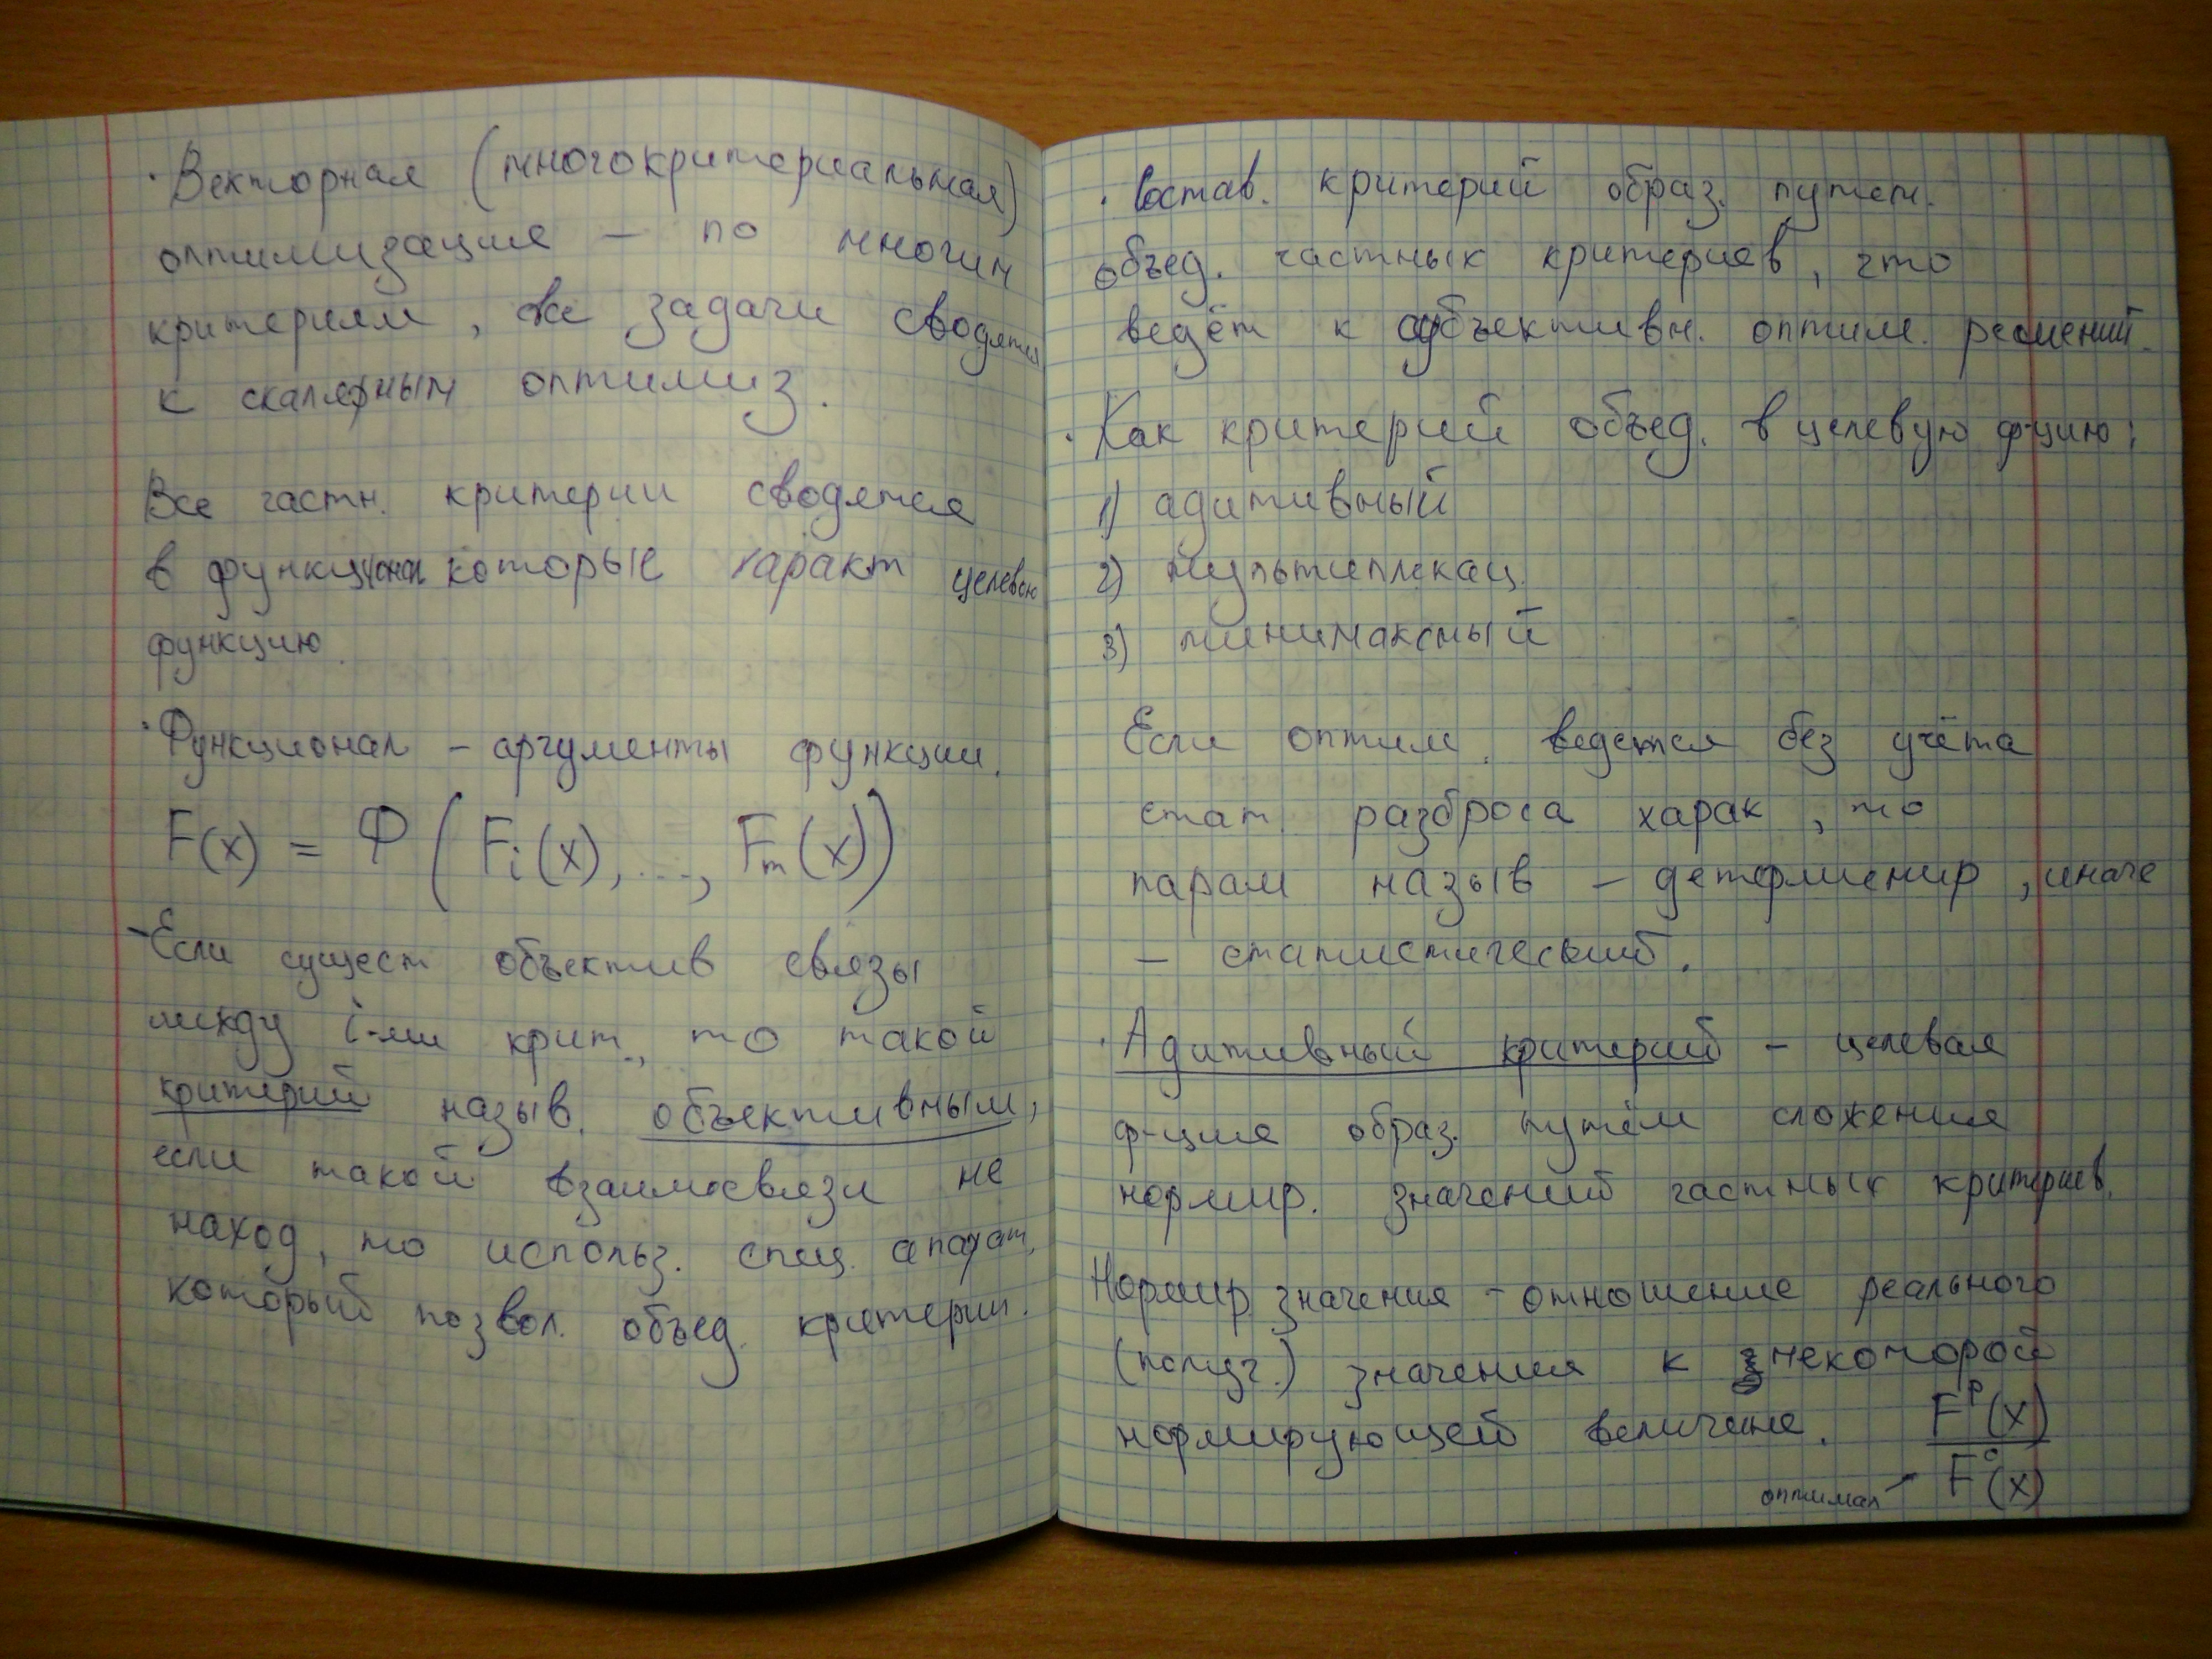 · Векторная (многокритериальная)
оптимизация – по многим
критериям, все задачи сводятся
к скалярным оптимиз.
Все частн. критерии сводятся
в функционал которые характ целевою
функцию.
· Функционал – аргументы функции.
F(x) = Ф (Fi(x), ..., Fm(x))
– Если сущест объектив связы
между i-ми крит., то такой
критерий назыв. объективным,
если такой взаимосвязи не
наход, то использ. спец. апарат,
который позвол. объед. критерии.
· Состав. критерий образ. путем.
объед. частных критериев, что
ведёт к субъективн. оптим. решений.
· Как критерий объед. в целевую ф-цию:
1) адитивный
2) мультиплекац.
3) минимаксный
Если оптим. ведется без учёта
стат. разброса харак, то
парам назыв – детерминир, иначе
– статистический.
· Адитивный критерий – целевая
ф-ция образ. путём сложения
нормир. значений частных критериев.
Нормир. значения – отношение реального
(получ.) значения к некоторой
нормирующей величине. F^p(x)
оптимал F^o(x)